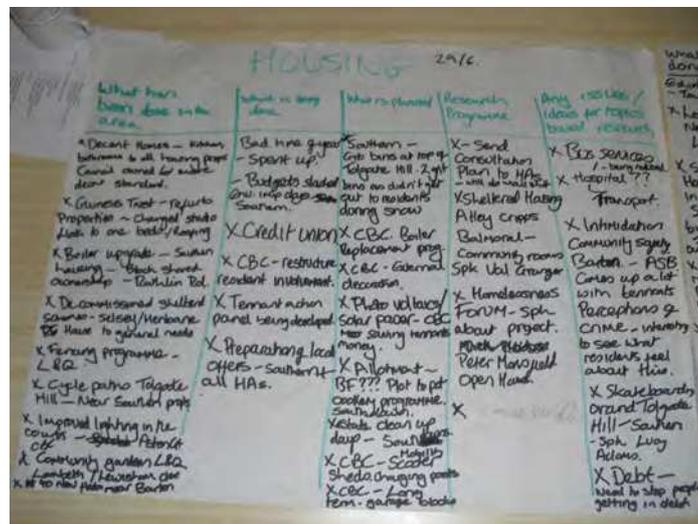 HOUSING 29/6.
What has
been done in the
area
* Decent Homes - kitchen,
bathrooms to all housing props
Council owned
decent standard.
X Guinness Trest - refurb
Properties - Changed studio
flats to one beds/
X Boiler upgrade -
housing - Block shared
ownership - Rd.
X Decommissioned sheltered
- Selsey/Henbane
to general needs
X Fencing programme -
L&Q
X Cycle paths Tolgate
Hill - Near Southern props
X Improved lighting in the
courts - Aston Crt
X Community garden L&Q
Lambeth / Lewisham close
What is being
done
Bad time of year
- Spent up.
- Budgets slashed
days
Southern.
X Credit union
X CBC - restructure
resident involvement.
X Tennant action
panel being developed
X Preparationg local
offers - Southern +
all HAs.
What is planned
* Southern -
Grit bins at top of
Tolgate Hill - 2 grit
bins as didn't get
out to residents
during snow
X CBC Boiler
Replacement prog.
X CBC - External
decoration.
X Photo voltaics/
solar pacer - CBC
saving tennants
money.
X Allotment -
BF??? Plot to pot
cookery programme.
X Estate clean up
days -
X CBC - Mobility Scooter
sheds, charging points
X CBC - Long
term - garage blocks
Research
Programme
X - Send
Consultation
Plan to HAs
X Sheltered Housing
Alley cropps
Balmoral -
Community rooms
Spk Val Granger
X Homelessness
Forum - spk
about project.
Peter Mansfield
Open House
X
Any issues/
ideas for topics
based research
X Bus services
/ - being reduced
X Hospital ??
Transport.
X Intimidation
Community safety
Barton - ASB
Comes up a lot
with tennants
Perceptions of
crime - interesting
to see what
residents feel
about this.
X Skateboards
around Tolgate
Hill - Southern
- Spk Lucy
Adams.
X Debt -
need to stop people
getting in debt